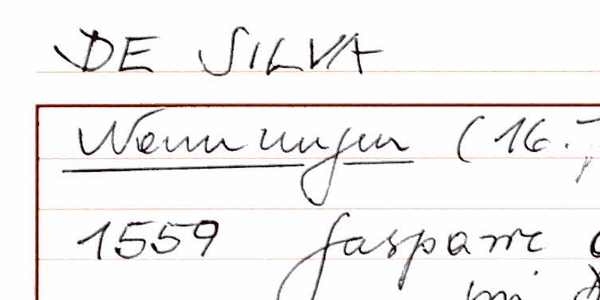 DE SILVA
Nennungen (16.
1559 Gasparre